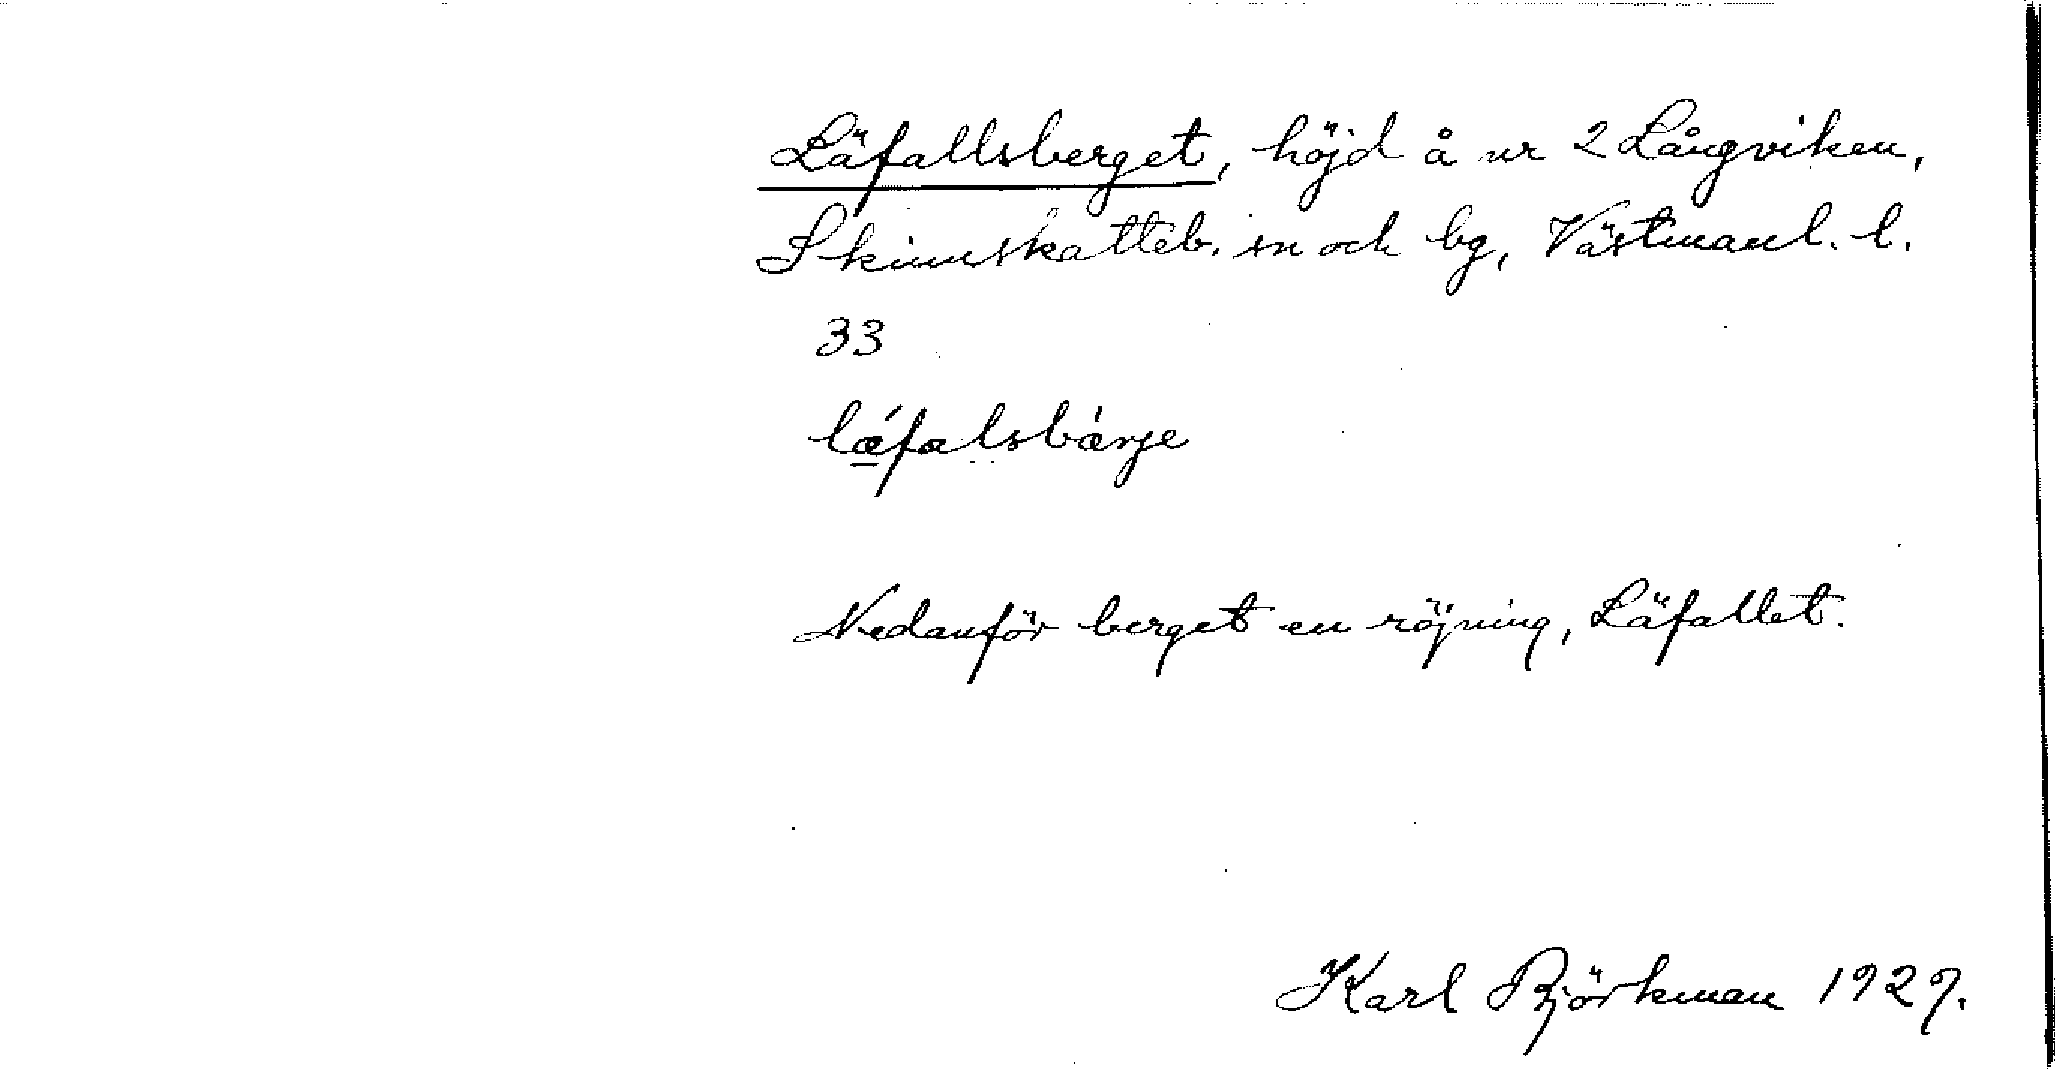 Läfallsberget, höjd å nr 2 Långviken,
Skinnskatteb. sn och bg, Västmanl. l.
33
lǽfalsbä́rje
Nedanför berget en röjning, Läfallet.
Karl Björkman 1929.